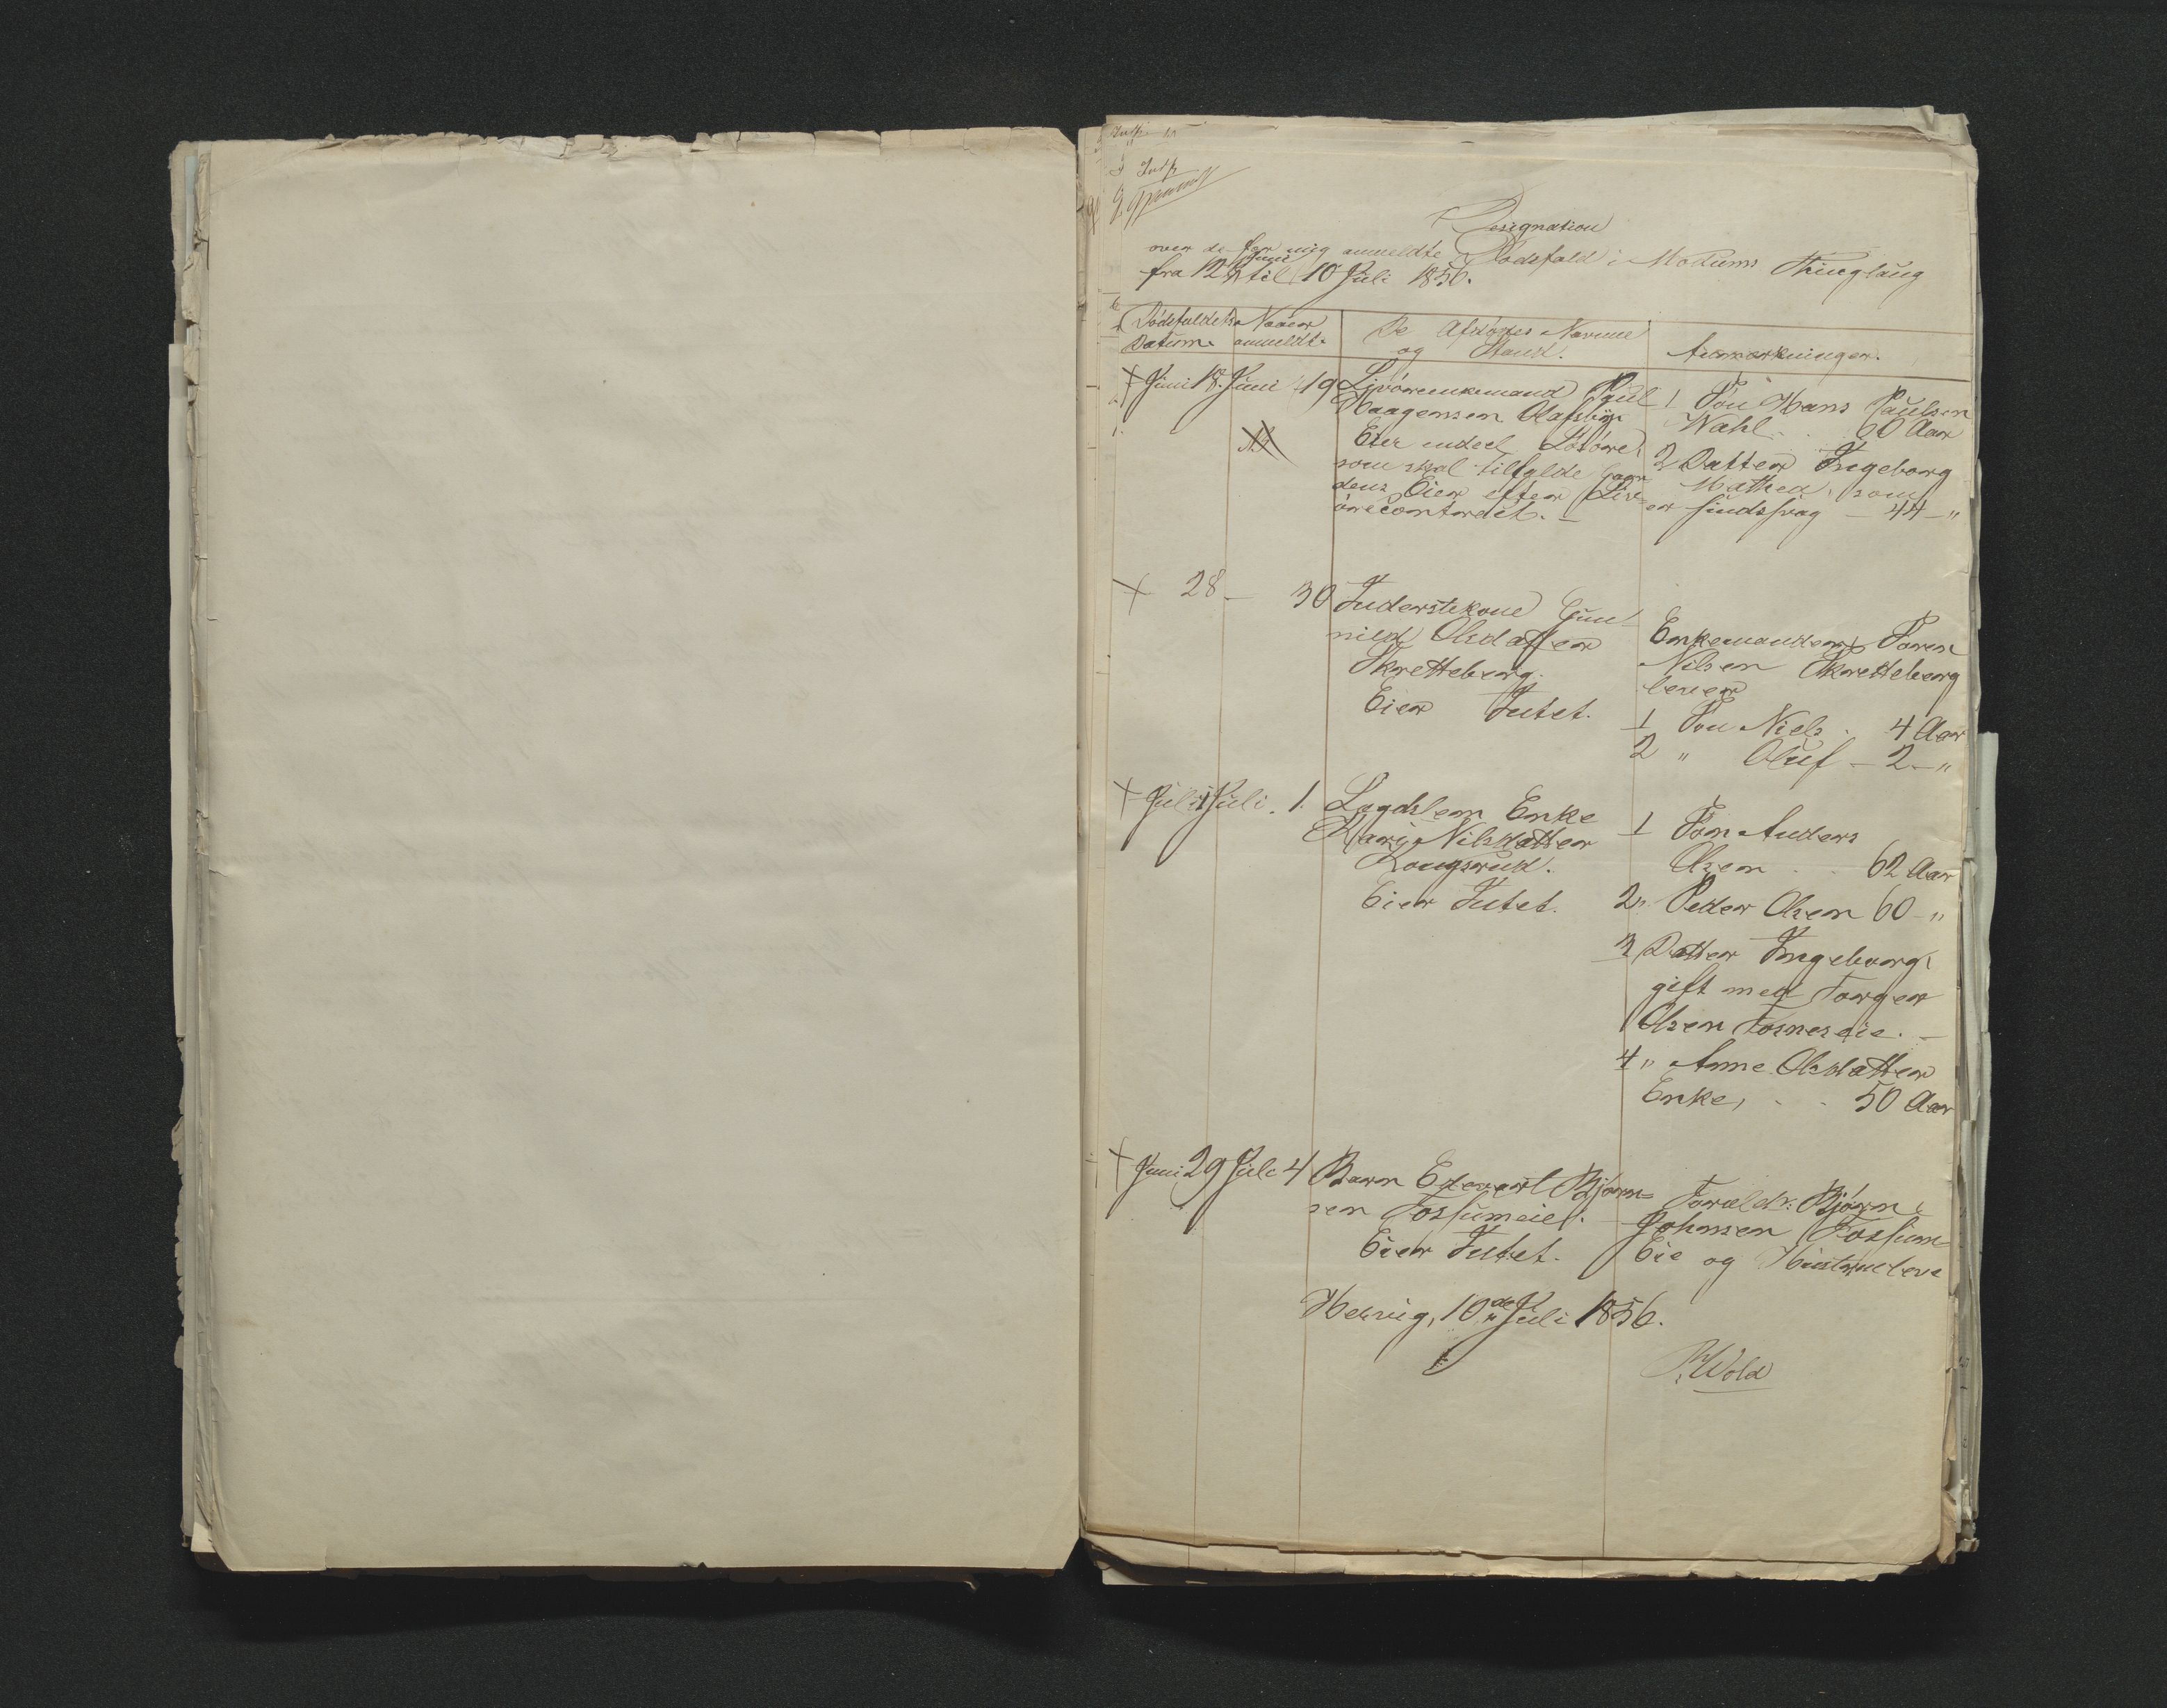 Designation
over de for mig anmeldte Dødsfald i Modums Thinglaug
fra 12 Juni til 10 Juli 1856.
Dødsfaldets Naaer
Datum. anmeldt.
De Afdødes Navne
og Stand.
Anmærkninger.
Juni 18. Juni 19
Livøreenkemand Paul
Haagensen Olafsby.
Eier endeel Løsøre,
som skal tilfalde Gaar
dens Eier efter Liv-
ørecontractet. –
1 Søn Hans Paulsen
Wahl . . 60 Aar
2 Datter Ingeborg
Mathea, som
er sindssvag – 44 – "
28 – 30
Inderstekone Gun-
nild Olsdatter
Skretteberg.
Eier Intet.
Enkemanden Søren
Nilsen Skretteberg
lever
1 Søn Niels . 4 Aar
2 " Oluf – 2 – "
Juli 1 Juli . 1.
Lægdslem Enke
Kari Nilsdatter
Kongsrud.
Eier Intet.
1 Søn Anders
Olsen . . 62 Aar
2 " Peder Olsen 60 – "
3 Datter Ingeborg,
gift med Torger
Olsen Fosneseie. –
4 " Anne Olsdatter
Enke, . . 50 Aar
Juni 29 Juli 4
Barn Edevart Bjørn-
sen Fossumeie.
Eier Intet.
Foreldr: Bjørn
Johnsen Fossum-
Eie og Hustrue leve
Hervig, 10de Juli 1856.
P. Wold